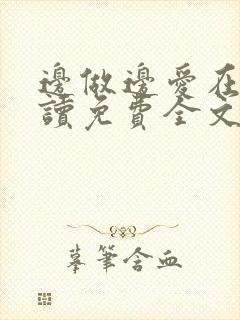 邊做邊愛在
讀免費全文
摹筆含血